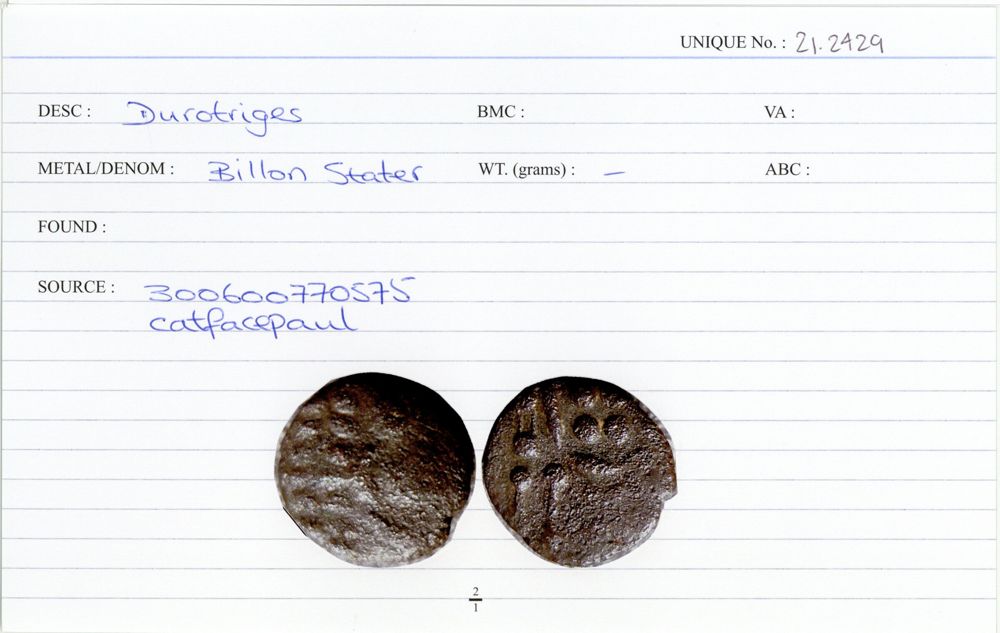 UNIQUE No. : 21.2429
DESC : Durotriges BMC : VA :
METAL/DENOM : Billon Stater WT. (grams) : – ABC :
FOUND :
SOURCE : 300600770575
catfacepaul
2
1